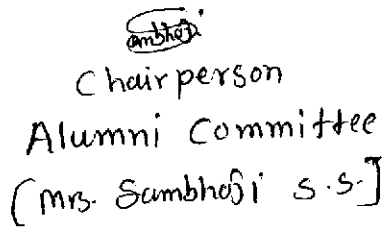 Chairperson
Alumni Committee
(Mrs. Sambhoji S.S.]